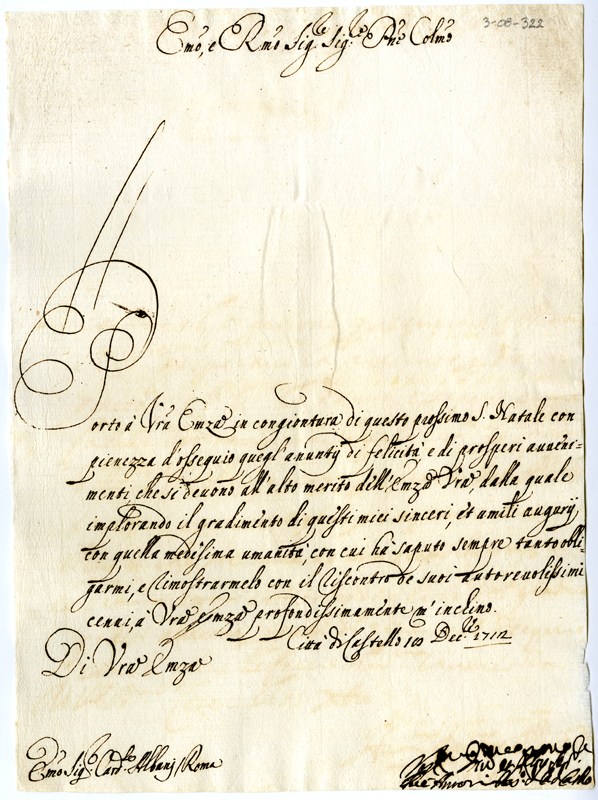 3-08-322
Emo, e Rmo Sig.re Sig.re Pne Colmo
Porto à Vra Emza in congiontura di questo prossimo S. Natale con
pienezza d'ossequio quegl'anuntÿ di felicità e di prosperi auueni=
menti, che si deuono all'alto merito dell'Emza Vra, dalla quale
implorando il gradimento di questi miei sinceri, et umili augurÿ
con quella medesima umanità, con cui hà saputo sempre tanto obli=
garmi, e rimostrarmelo con il riscontro de suoi autoreuolissimi
cenni, à Vra Emza profondissimamente m'inclino.
Città di Castello Dec.re 1712
Di Vra Emza
Emo Sig.re Card.le Albani, Roma